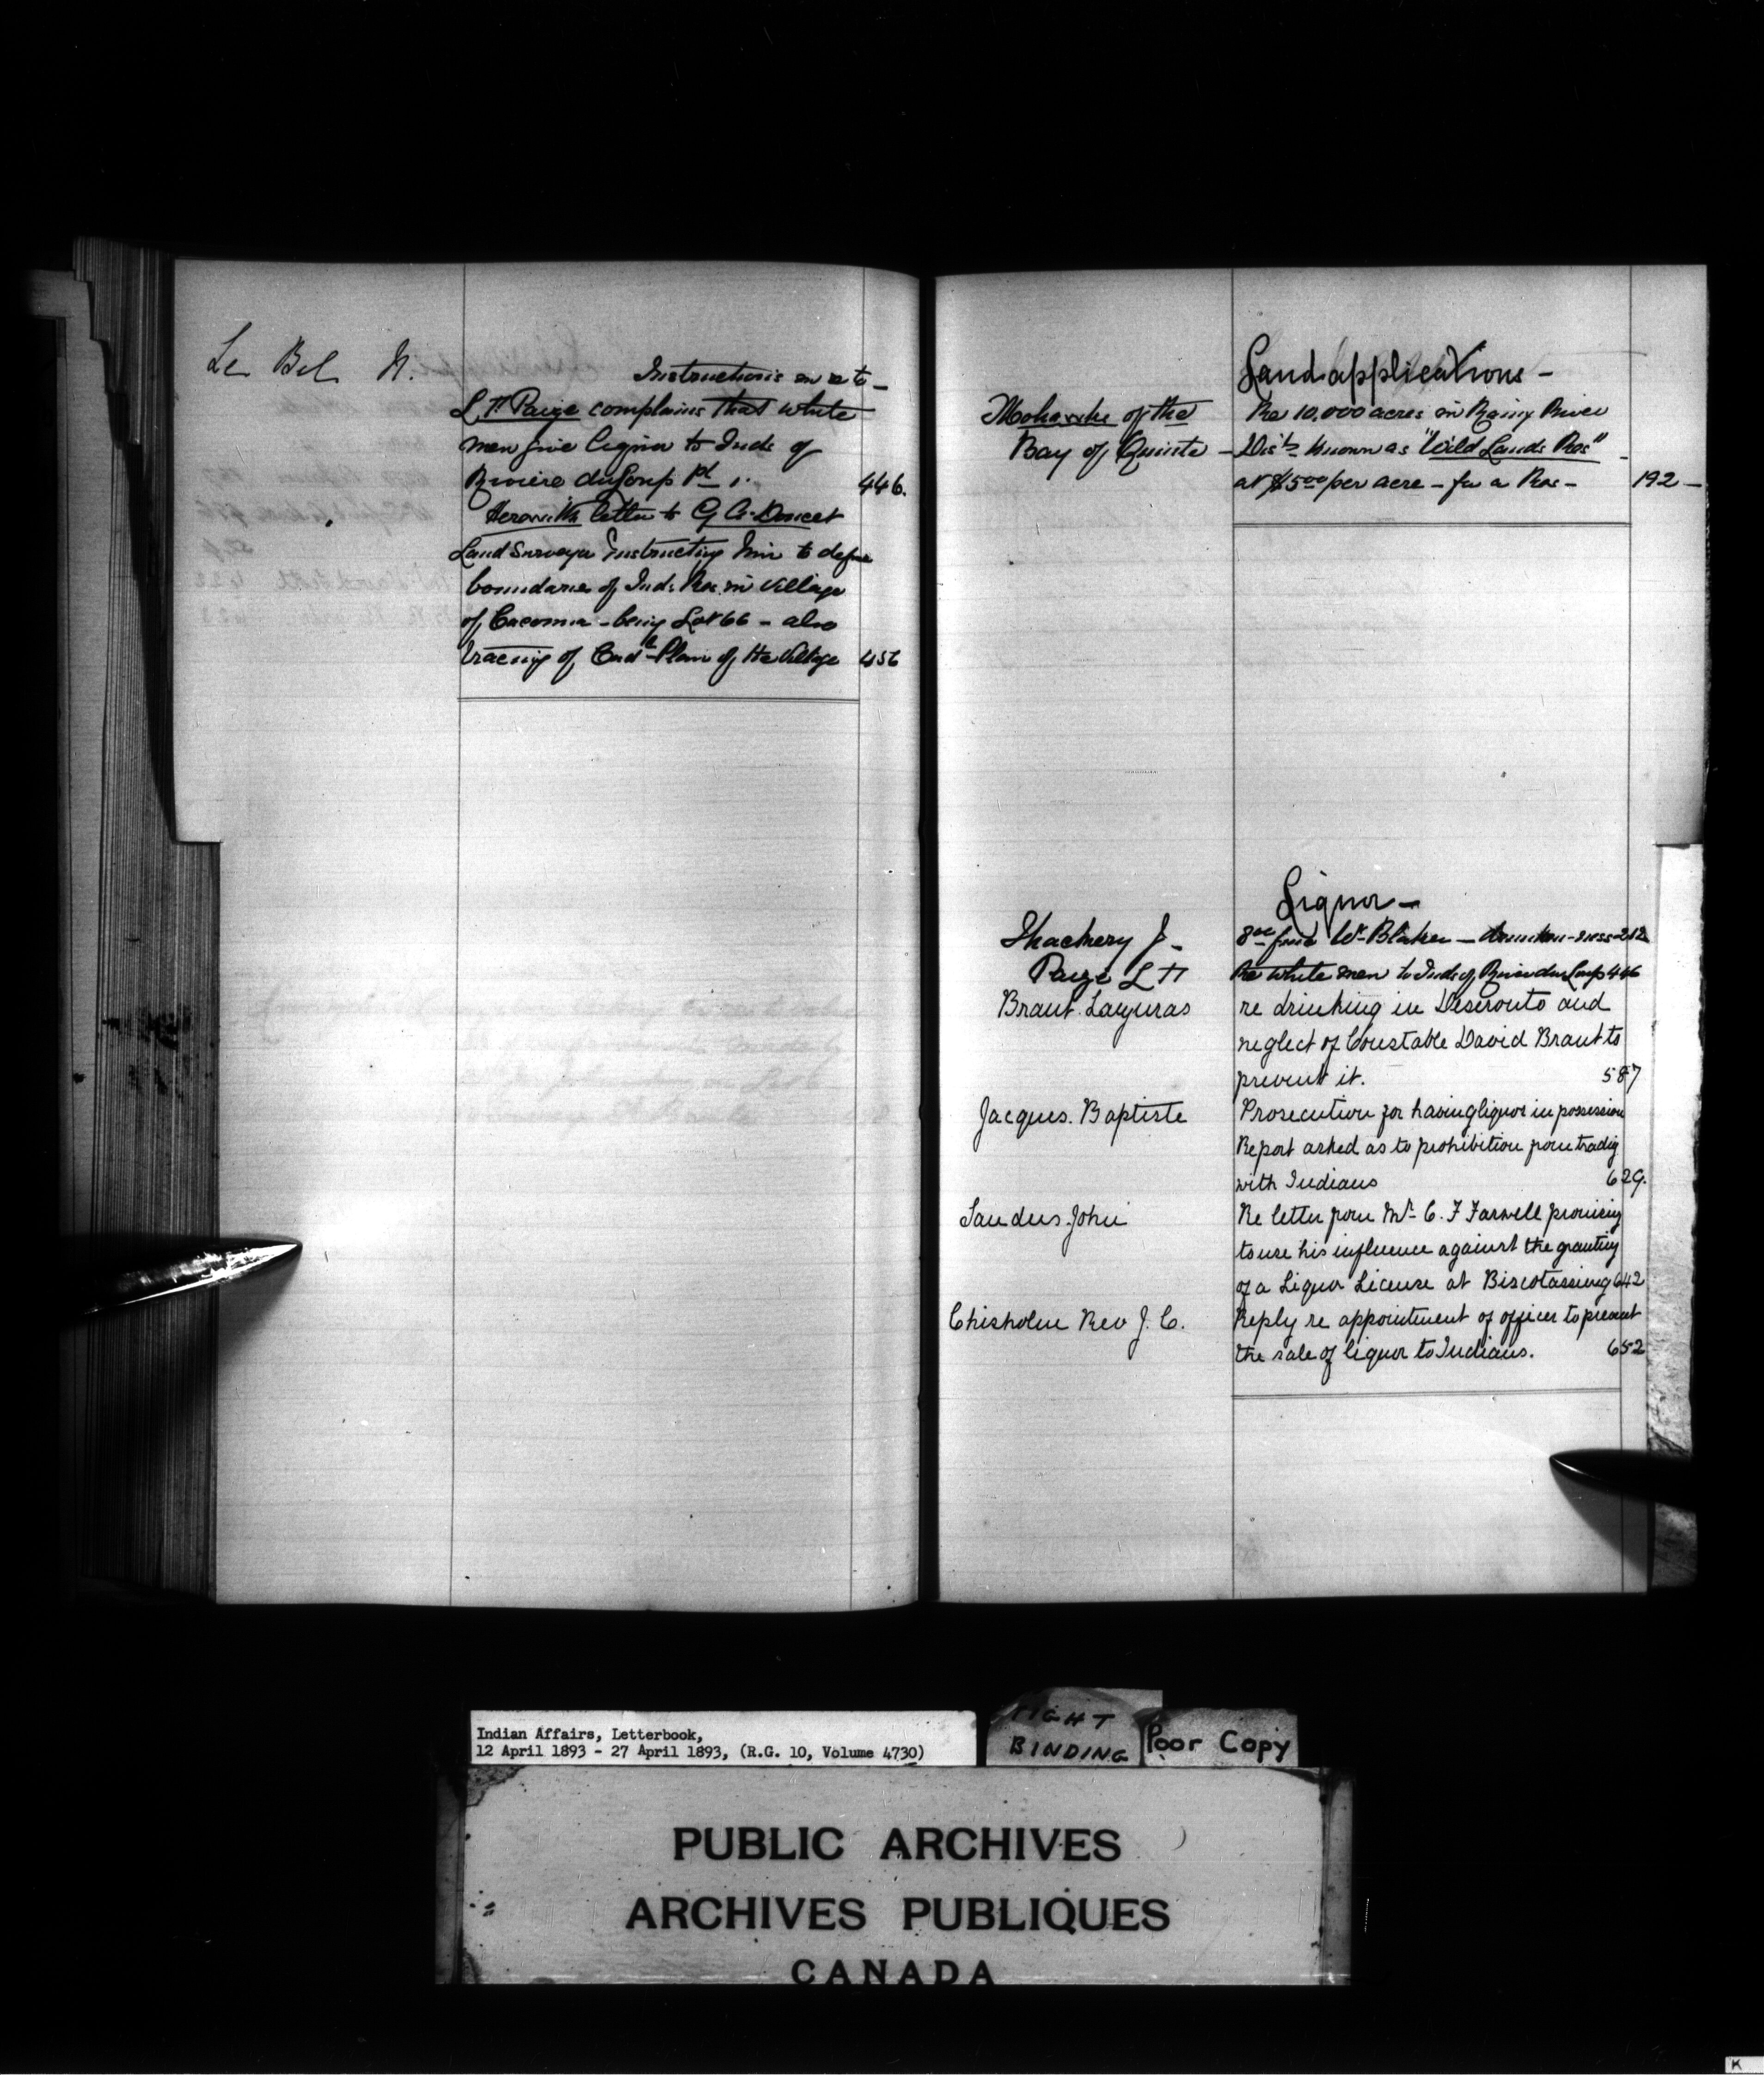 Le Bel N.
Instructions on re to -
L. H. Paize complains that white
men give liquor to Inds of
Riviere du Loup Pt 1.
446.
Herewith letter to G A. Doucet
Land Surveyor Instructing him to define
boundaries of Inds Res. in Village
of Cacouna - being Lot 66 - also
tracing of Cadl Plan of the Village 456
Land applications -
Mohawks of the
Bay of Quinte -
Re 10,000 acres in Rainy River
Dist. known as "Wild Lands Res" -
at $5.00 per acre - for a Res -
192 -
Liquor -
Thackery J - 8.00 fine Wm Blaker - drunken-ness 212
Paize L H Re white men to Inds of Riviere du Loup 446
Brant. Layuras re drinking in Deseronto and
neglect of Constable David Brant to
prevent it. 587
Jacques. Baptiste Prosecution for having liquor in possession
Report asked as to prohibition from trading
with Indians 629.
Saudus. John Re letter from Mr. C. F Farwell promising
to use his influence against the granting
of a Liquor License at Biscotassing 642
Chisholm Rev J. C. Reply re appointment of officer to prevent
the sale of liquor to Indians. 652
Indian Affairs, Letterbook,
12 April 1893 - 27 April 1893, (R.G. 10, Volume 4730)
TIGHT
BINDING
Poor Copy
PUBLIC ARCHIVES
ARCHIVES PUBLIQUES
CANADA
K